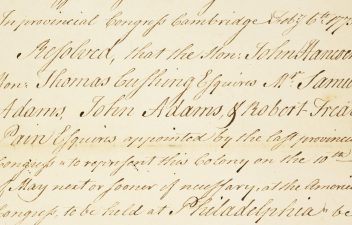 In provincial Congress Cambridge Feby 6th 177
Resolved, that the Hon. John Hancock
Hon: Thomas Cushing Esquires Mr. Samu
Adams, John Adams, & Robert Treat
Pain Esquires appointed by the last provinci
Congress to represent this Colony on the 10th
of May next or sooner if necessary, at the America
Congress to be held at Philadelphia be